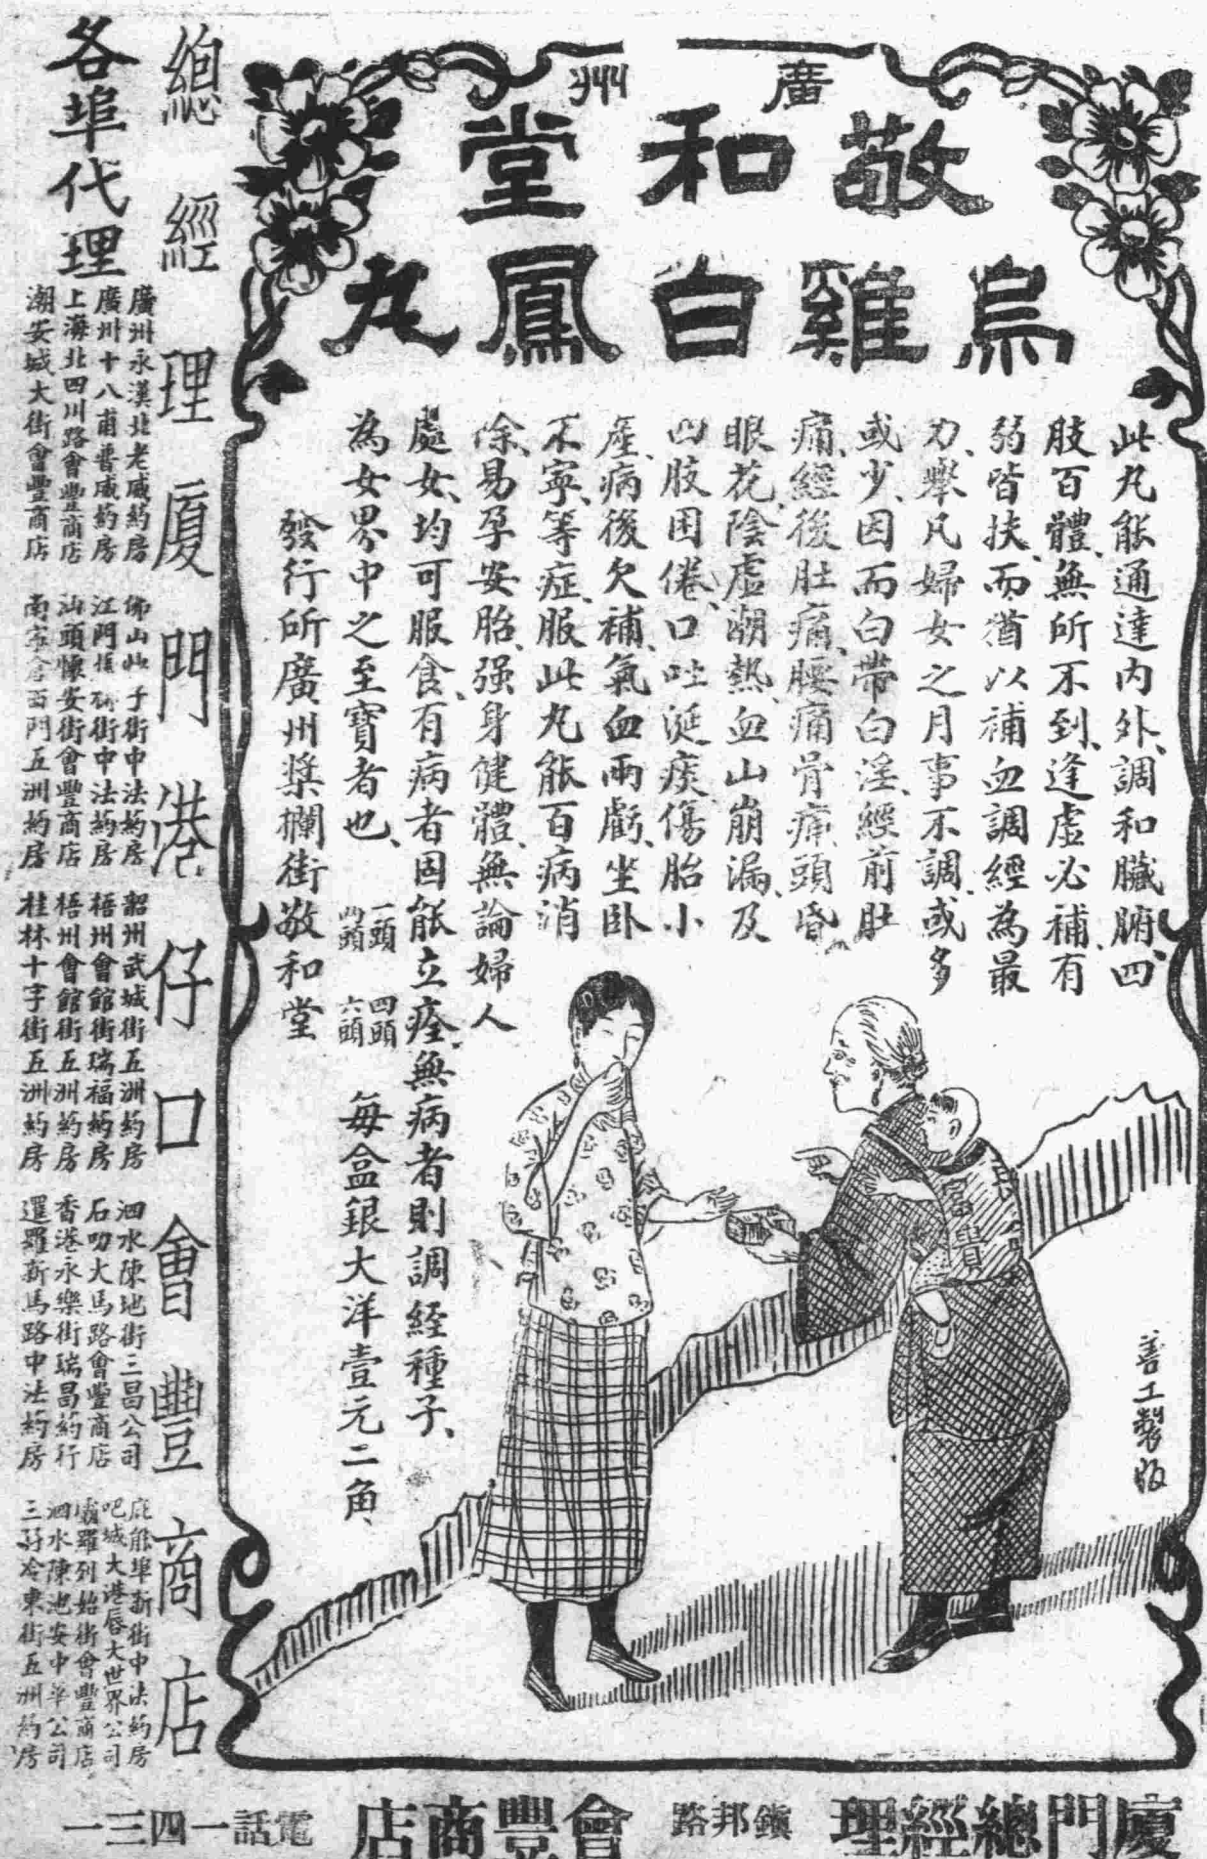 廣州
敬和堂
烏雞白鳳丸
此丸能通達内外、調和臟腑、四
肢百體、無所不到、逢虛必補、有
弱皆扶、而猶以補血調經為最
力、舉凡婦女之月事不調、或多
或少、因而白帶白淫、經前肚
痛、經後肚痛、腰痛骨痛、頭昏
眼花、陰虛潮熱、血山崩漏、及
四肢困倦、口吐涎痰、傷胎小
產、病後欠補、氣血兩虧、坐卧
不寧、等症、服此丸能百病消
除、易孕安胎、强身健體、無論婦人
處女、均可服食、有病者固能立痊、無病者則調經種子、
為女界中之至寶者也、
一頭 四頭
四頭 六頭
每盒銀大洋壹元二角、
發行所廣州槳欄街敬和堂
富貴
善工製版
總經理廈門港仔口會豐商店
各埠代理
廣州永漢北老威葯房
廣州十八甫普威葯房
上海北四川路會豐商店
潮安城大街會豐商店
江門 街中法葯房
汕頭懷安街會豐商店
南寧倉西門五洲葯房
韶州武城街五洲葯房
梧州會館街瑞福葯房
梧州會館街五洲葯房
桂林十字街五洲葯房
泗水陳地街三昌公司
石叻大馬路會豐商店
香港永樂街瑞昌葯行
暹羅新馬路中法葯房
庇能埠新街中法葯房
吧城大港唇大世界公司
羅列始街會豐商店
泗水陳池安中華公司
冷東街五洲葯房
廈門總經理 鎮邦路 會豐商店 電話一四三一